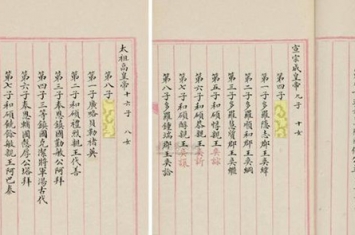 宣宗成皇帝 九子 十女
第四子
第一子多羅隱志郡王奕緯
第二子多羅順郡王奕綱
第三子多羅慧質郡王奕繼
第五子和碩惇親王奕誴
第六子和碩恭親王奕訢
第七子和碩醇親王奕譞
第八子多羅鍾端郡王奕詥
太祖高皇帝 十六子 八女
第八子
第一子廣略貝勒褚英
第二子和碩禮烈親王代善
第三子奉恩鎮國勤敏公阿拜
第四子三等鎮國克潔將軍湯古代
第六子奉恩輔國愨厚公塔拜
第七子和碩饒餘敏親王阿巴泰